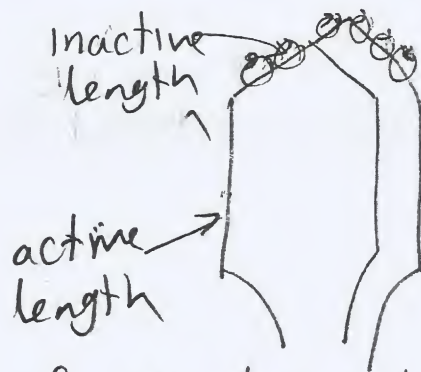 Inactive
length
active
length